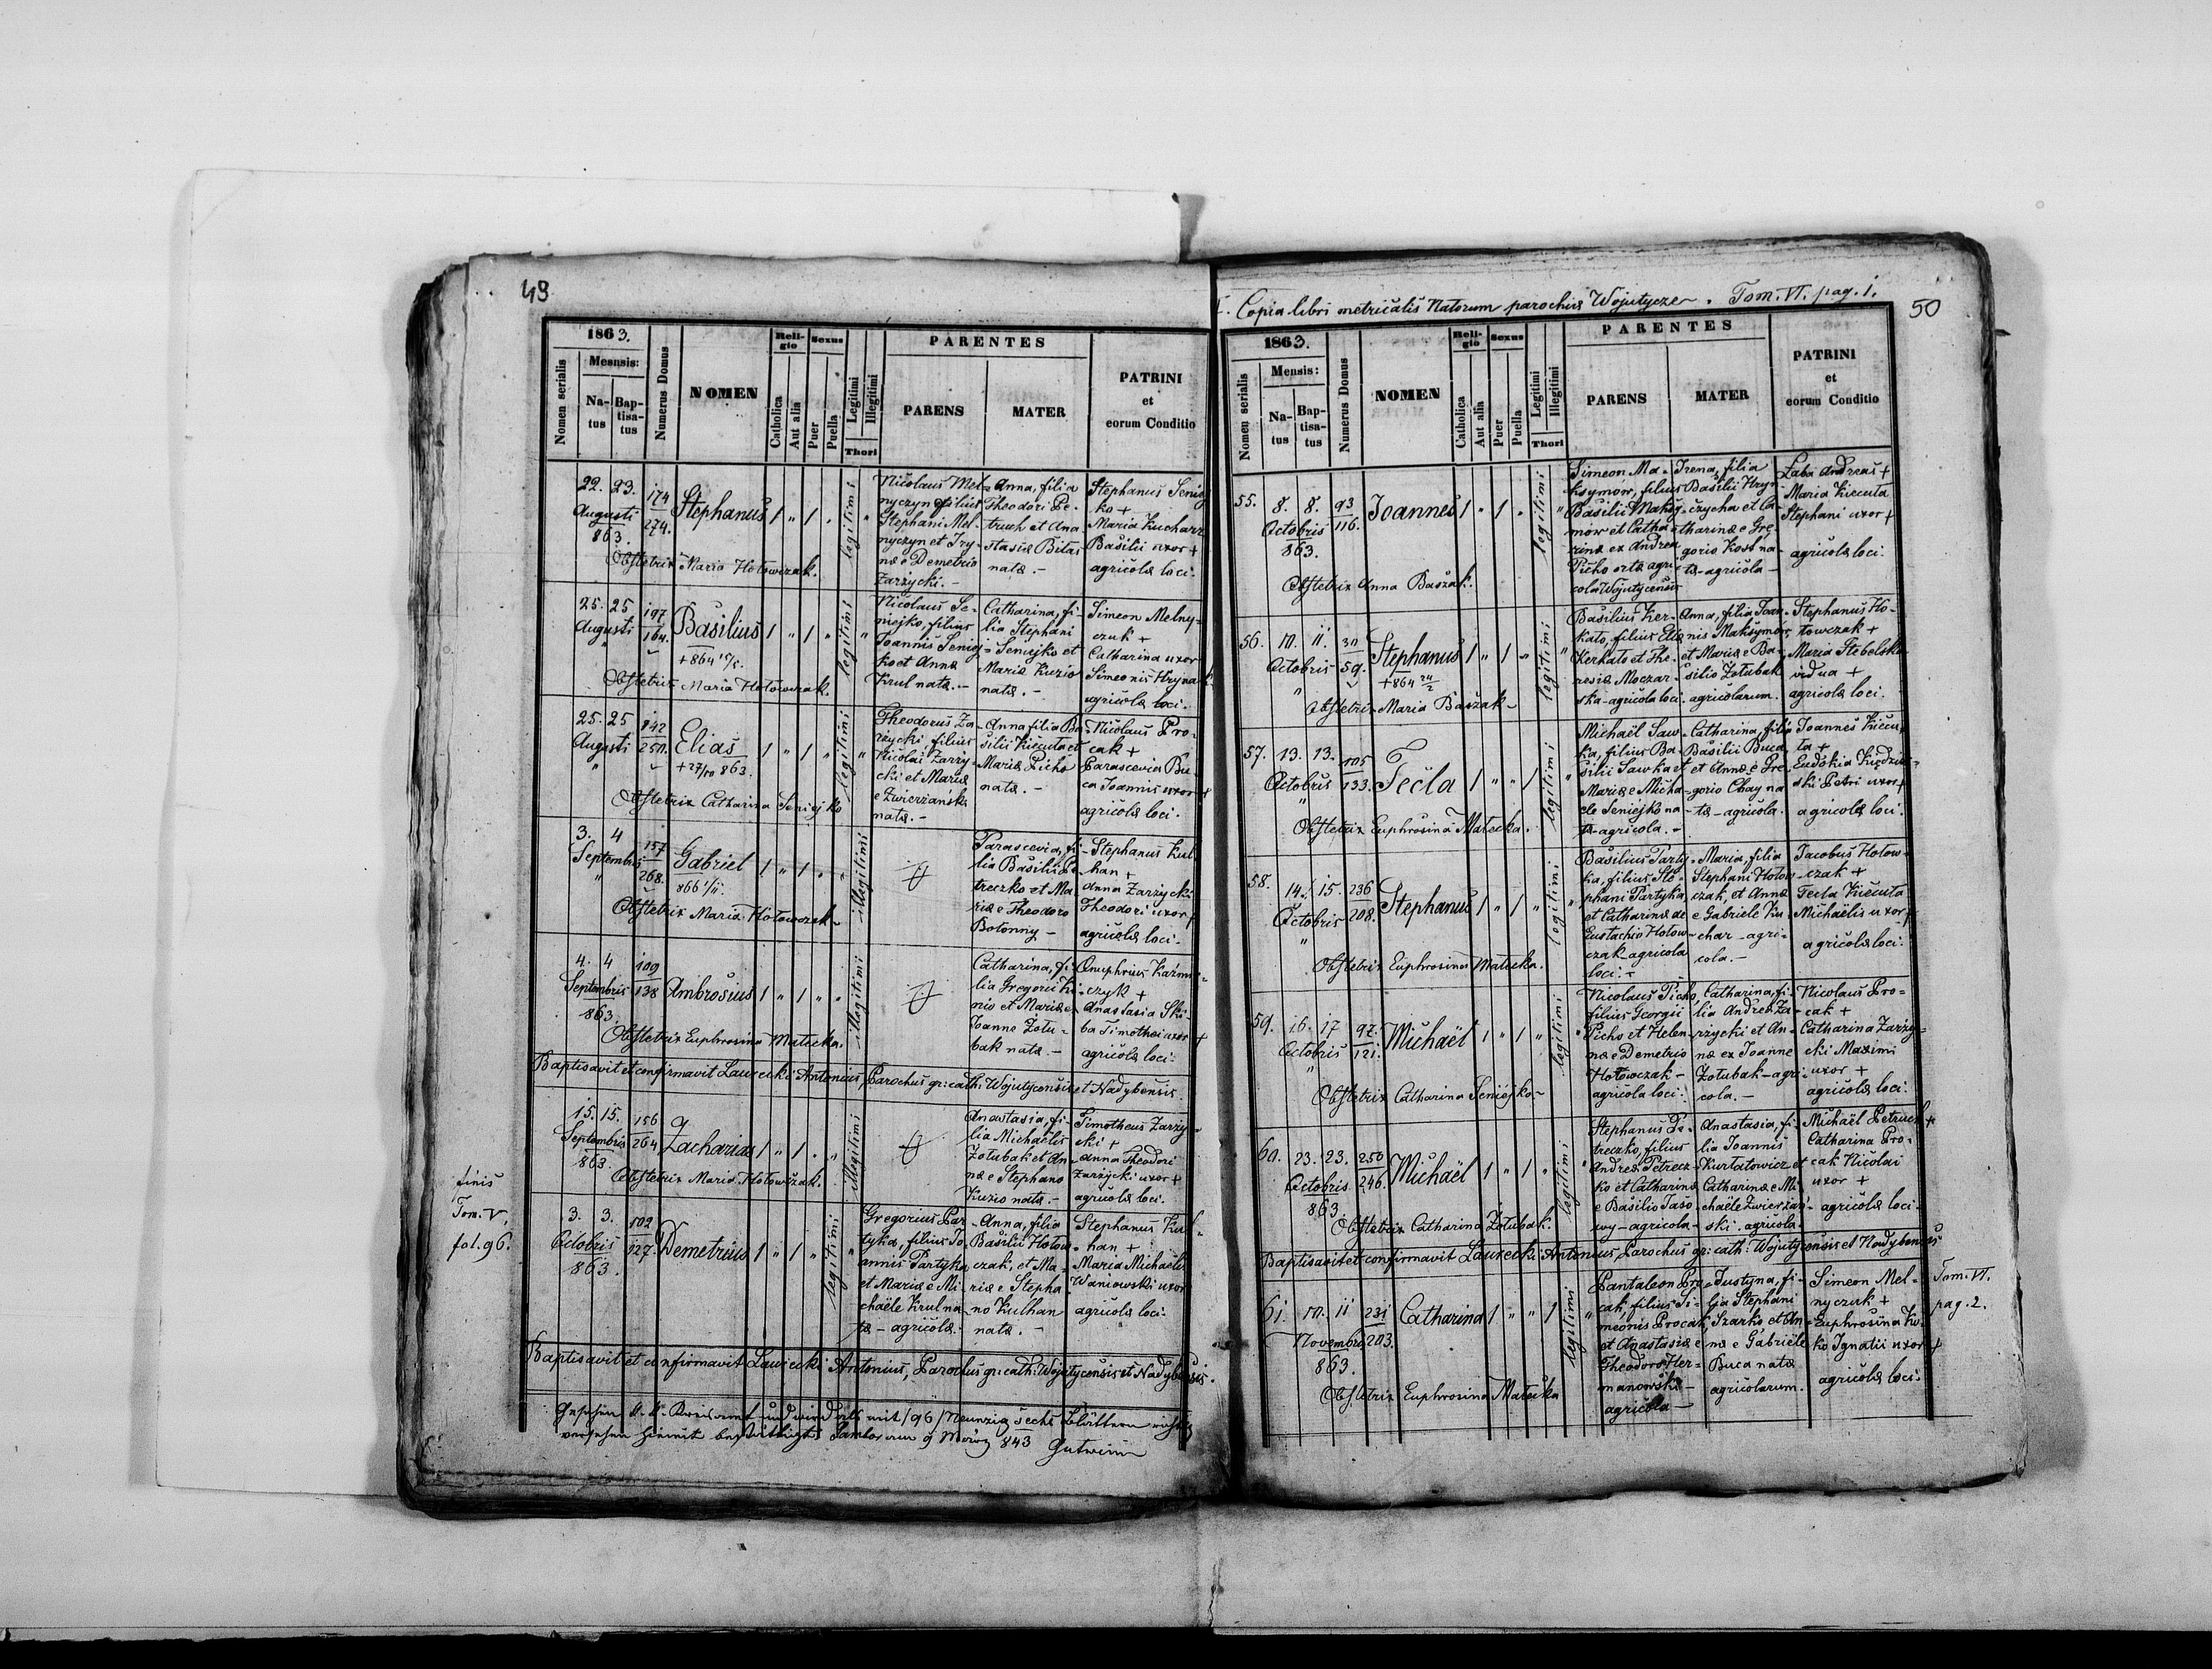 49
1863.
Nomen serialis
Mesnsis:
Na-
tus
Bap-
tisa-
tus
Numerus Domus
NOMEN
Reli-
gio
Catholica
Aut alia
Sexus
Puer
Puella
Legitimi
Illegitimi
Thori
PARENTES
PARENS
MATER
PATRINI
et
eorum Conditio
22. 23.
Augusti
863.
174
274.
Stephanus
1 " 1 "
legitimi
Nicolaus Mel-
nyczyn filius
Stephani Mel-
nyczyn et Iry-
næ e Demetrio
Zarzycki. -
Anna, filia
Theodori Pe-
truch et Ana
stasiæ Bitas
natæ. -
Stephanus Seniej
ko +
Maria Kucharz
Basilii uxor +
agricolæ loci.
Obstetrix Maria Hołowczak.
25. 25
Augusti
"
197
164.
Basilius
+864
1 " 1 "
legitimi
Nicolaus Se-
niejko, filius
Joannis Seniej
ko et Annæ
Krul natæ. -
Catharina, fi-
lia Stephani
Seniejko et
Mariæ Kuzio
natæ. -
Simeon Melny-
czuk +
Catharina uxor
Simeonis Hryna
agricolæ loci.
Obstetrix Maria Hołowczak.
25. 25
Augusti
"
142
250.
Elias
+27/10 863.
1 " 1 "
legitimi
Theodorus Za-
rzycki filius
Nicolai Zarzy-
cki et Mariæ
e Zwierzańsk
natæ. -
Anna filia Ba-
silii Kiecuta et
Mariæ Picho
natæ. -
Nicolaus Pro-
cak +
Parascevia Bu-
ca Joannis uxor +
agricolæ loci.
Obstetrix Catharina Seniejko
3. 4
Septembris
"
157
268.
Gabriel
866 1/11.
1 " 1 "
illegitimi
Parascevia, fi-
lia Basilii Pe
treczko et Ma
riæ e Theodoro
Botonny -
Stephanus Kul
han +
Anna Zarzycki
Theodori uxor +
agricolæ loci.
Obstetrix Maria Hołowczak -
4. 4
Septembris
863.
109
138
Ambrosius
1 " 1 "
illegitimi
Catharina, fi-
lia Gregorii Ki-
nio et Mariæ e
Joanne Zołu-
bak natæ. -
Onuphrius Kaźmi-
czyk +
Anastasia Ski-
ba Timothei uxor +
agricolæ loci.
Obstetrix Euphrosina Małecka.
Baptisavit et confirmavit Laurecki Antonius, Parochus gr: cath: Wojutycensis et Nadybensis.
15. 15.
Septembris
863.
156
264
Zacharias
1 " 1 "
illegitimi
Anastasia, fi-
lia Michaelis
Zołubak et An-
næ e Stephano
Kuzio natæ. -
Timotheus Zarzy-
cki +
Anna Theodori
Zarzycki uxor +
agricolæ loci.
Obstetrix Maria Hołowczak.
finis
Tom. V.
fol. 96.
3. 3.
Octobris
863.
102
127.
Demetrius
1 " 1 "
legitimi
Gregorius Par
tyka, filius Jo-
annis Partyka
et Mariæ e Mi-
chaële Krul na
tæ - agricolæ.
Anna, filia
Basilii Hołow
czak, et Ma-
riæ e Stepha
no Kulhan
natæ. -
Stephanus Kul
han +
Maria Michaelis
Waniowski uxor
agricolæ loci.
Baptisavit et confirmavit Laurecki Antonius, Parochus gr: cath: Wojutycensis et Nadybensis.
Gesehen k. k. Kreisamt und wird als mit /96/ Neunzig Sechs Blättern richtig
versehen hiemit bestättigt. Sambor am 9 März 843
Copia libri metricalis Natorum parochiæ Wojutycze. Tom. VI. pag. 1.
50
1863.
Nomen serialis
Mensis:
Na-
tus
Bap-
tisa-
tus
Numerus Domus
NOMEN
Reli-
gio
Catholica
Aut alia
Sexus
Puer
Puella
Legitimi
Illegitimi
Thori
PARENTES
PARENS
MATER
PATRINI
et
eorum Conditio
55. 8. 8.
Octobris
863.
93
116.
Joannes
1 " 1 "
legitimi
Simeon Ma-
ksymow, filius
Basilii Maksy-
mow et Catha-
rinæ ex Andrea
Picho ortæ agri
cola Wojutycensis
Irena, filia
Basilii Hryn-
czycha et Ca-
tharinæ e Gre-
gorio Kost na-
tæ - agricola -
Łaba Andreas +
Maria Kiecuta
Stephani uxor +
agricolæ loci.
Obstetrix Anna Baszak.
56. 10. 11.
Octobris
"
30
59.
Stephanus
+864 24/2
1 " 1 "
legitimi
Basilius Ker-
kało, filius Eliæ
Kerkało et The-
resiæ Moczar-
ska - agricola loci.
Anna, filia Joan-
nis Maksymow
et Mariæ e Ba-
silio Zołubak
agricolarum.
Stephanus Ho-
łowczak +
Maria Stebelska
vidua +
agricolæ loci.
Obstetrix Maria Baszak -
57. 13. 13.
Octobris
"
105
133.
Tecla
1 " " 1
legitimi
Michaël Saw-
ka, filius Ba-
silii Sawka et
Mariæ e Micha-
ele Seniejko na-
tæ - agricola. -
Catharina, filia
Basilii Buca
et Annæ e Gre-
gorio Chay na-
tæ - agricola.
Joannes Kiecu-
ta +
Eudokia Kiędzier-
ski Petri uxor +
agricolæ loci.
Obstetrix Euphrosina Małecka.
58. 14. 15.
Octobris
"
236
208.
Stephanus
1 " 1 "
legitimi
Basilius Party-
ka, filius Ste-
phani Partyka,
et Catharinæ de
Eustachio Hołow-
czak agricola
loci. -
Maria, filia
Stephani Hołow-
czak, et Annæ
e Gabriele Ku-
char - agri-
cola. -
Jacobus Hołow-
czak +
Tecla Kiecuta
Michaëlis uxor +
agricolæ loci.
Obstetrix Euphrosina Małecka.
59. 16. 17
Octobris
"
92.
121.
Michaël
1 " 1 "
legitimi
Nicolaus Picho,
filius Georgii
Picho et Hele-
næ e Demetrio
Hołowczak -
agricola loci.
Catharina, fi-
lia Andreæ Za-
rzycki et An-
næ ex Joanne
Zołubak - agri-
cola. -
Nicolaus Pro-
cak +
Catharina Zarzy-
cki Maximi
uxor +
agricolæ loci.
Obstetrix Catharina Seniejko. -
60. 23. 23.
Octobris
863.
250
246.
Michaël
1 " 1 "
legitimi
Stephanus Pe-
treczko, filius
Andreæ Petrecz-
ko et Catharinæ
e Basilio Jaso-
wy - agricola -
Anastasia, fi-
lia Joannis
Kurtatowicz et
Catharinæ e Mi-
chaële Zwierzań-
ski. agricola.
Michaël Petruch +
Catharina Pro-
cak Nicolai
uxor +
agricolæ loci.
Obstetrix Catharina Zołubak.
Baptisavit et confirmavit Laurecki Antonius, Parochus gr: cath: Wojutycensis et Nadybensis
61. 10. 11
Novembris
863.
231
203.
Catharina
1 " " 1
legitimi
Pantaleon Pro-
cak, filius Si-
meonis Procak,
et Anastasiæ e
Theodoro Her-
manowski -
agricola -
Justyna, fi-
lia Stephani
Szarko et An-
næ e Gabriële
Buca natæ
agricolarum.
Simeon Mel-
nyczuk +
Euphrosina Ko-
ko Ignatii uxor +
agricolæ loci.
Tom. VI.
pag. 2.
Obstetrix Euphrosina Małecka